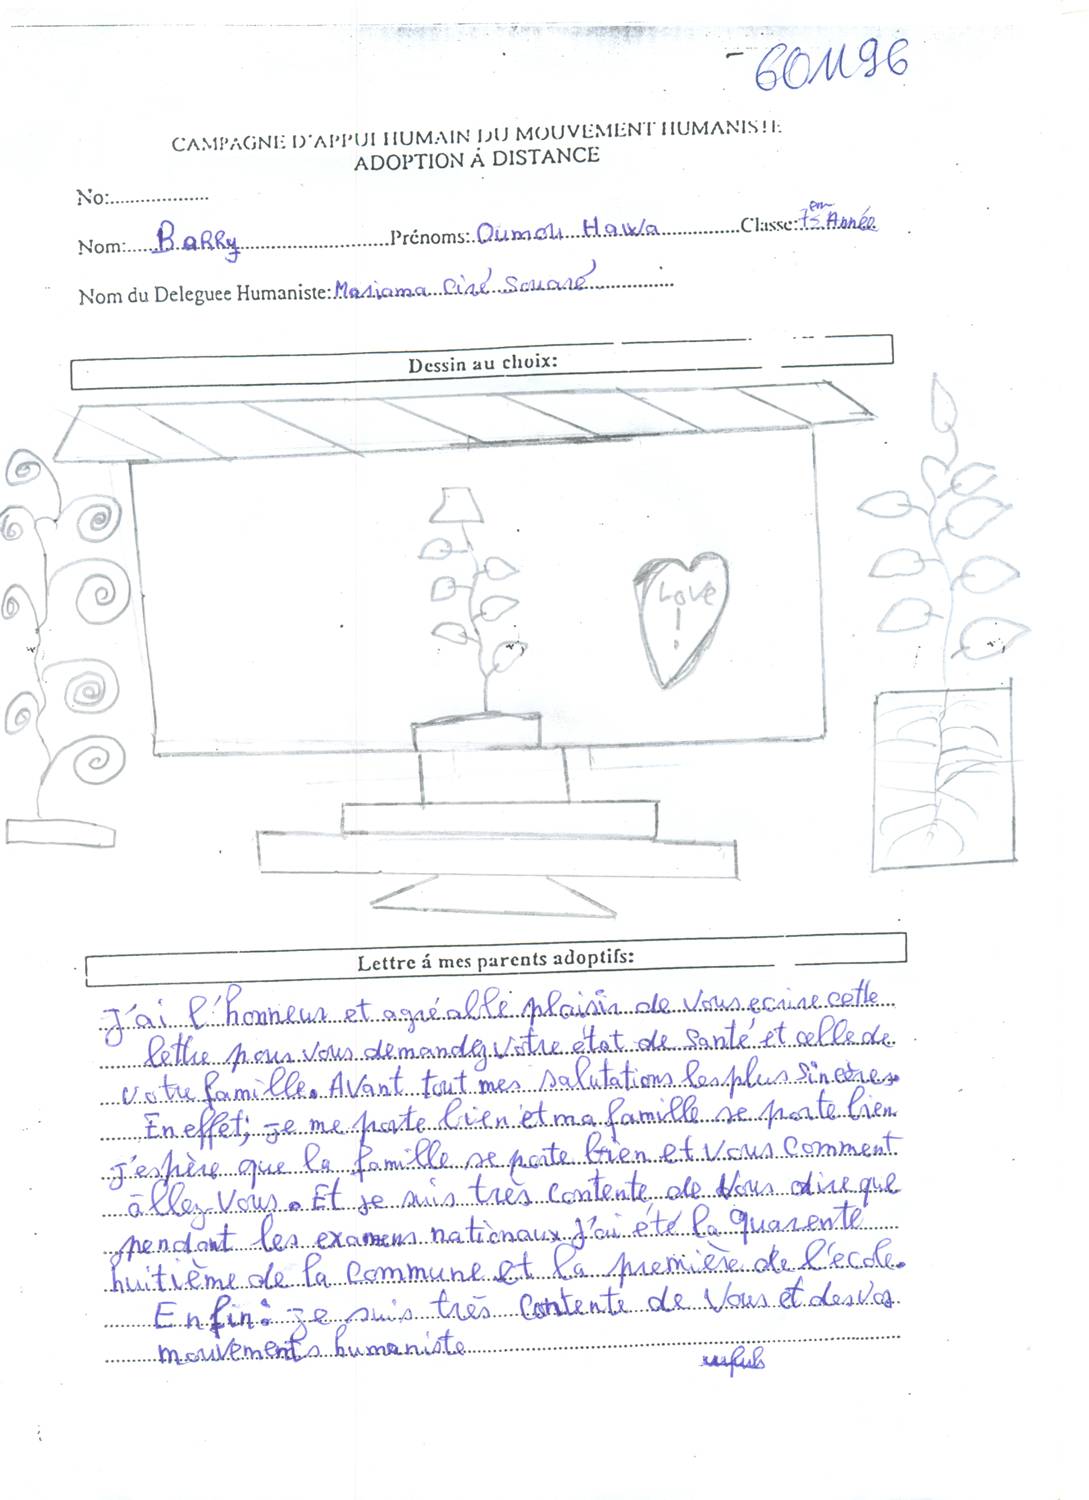 601196
CAMPAGNE D'APPUI HUMAIN DU MOUVEMENT HUMANISTE
ADOPTION À DISTANCE
No:...................
Nom: Barry Prénoms: Oumou Hawa Classe: 7em Année
Nom du Deleguee Humaniste: Mariama Ciré Souaré
Dessin au choix:
Love
!
Lettre á mes parents adoptifs:
J'ai l'honneur et agréable plaisir de vous ecrire cette
lettre pour vous demandez votre état de santé et celle de
votre famille. Avant tout mes salutations les plus sincères.
En effet; je me porte bien et ma famille se porte bien
J'espère que la famille se porte bien et vous comment
àllez-vous. Et je suis très contente de vous dire que
pendant les examens nationaux J'ai été la quarente
huitième de la commune et la première de l'école.
Enfin: je suis très contente de vous et des vos
mouvements humaniste